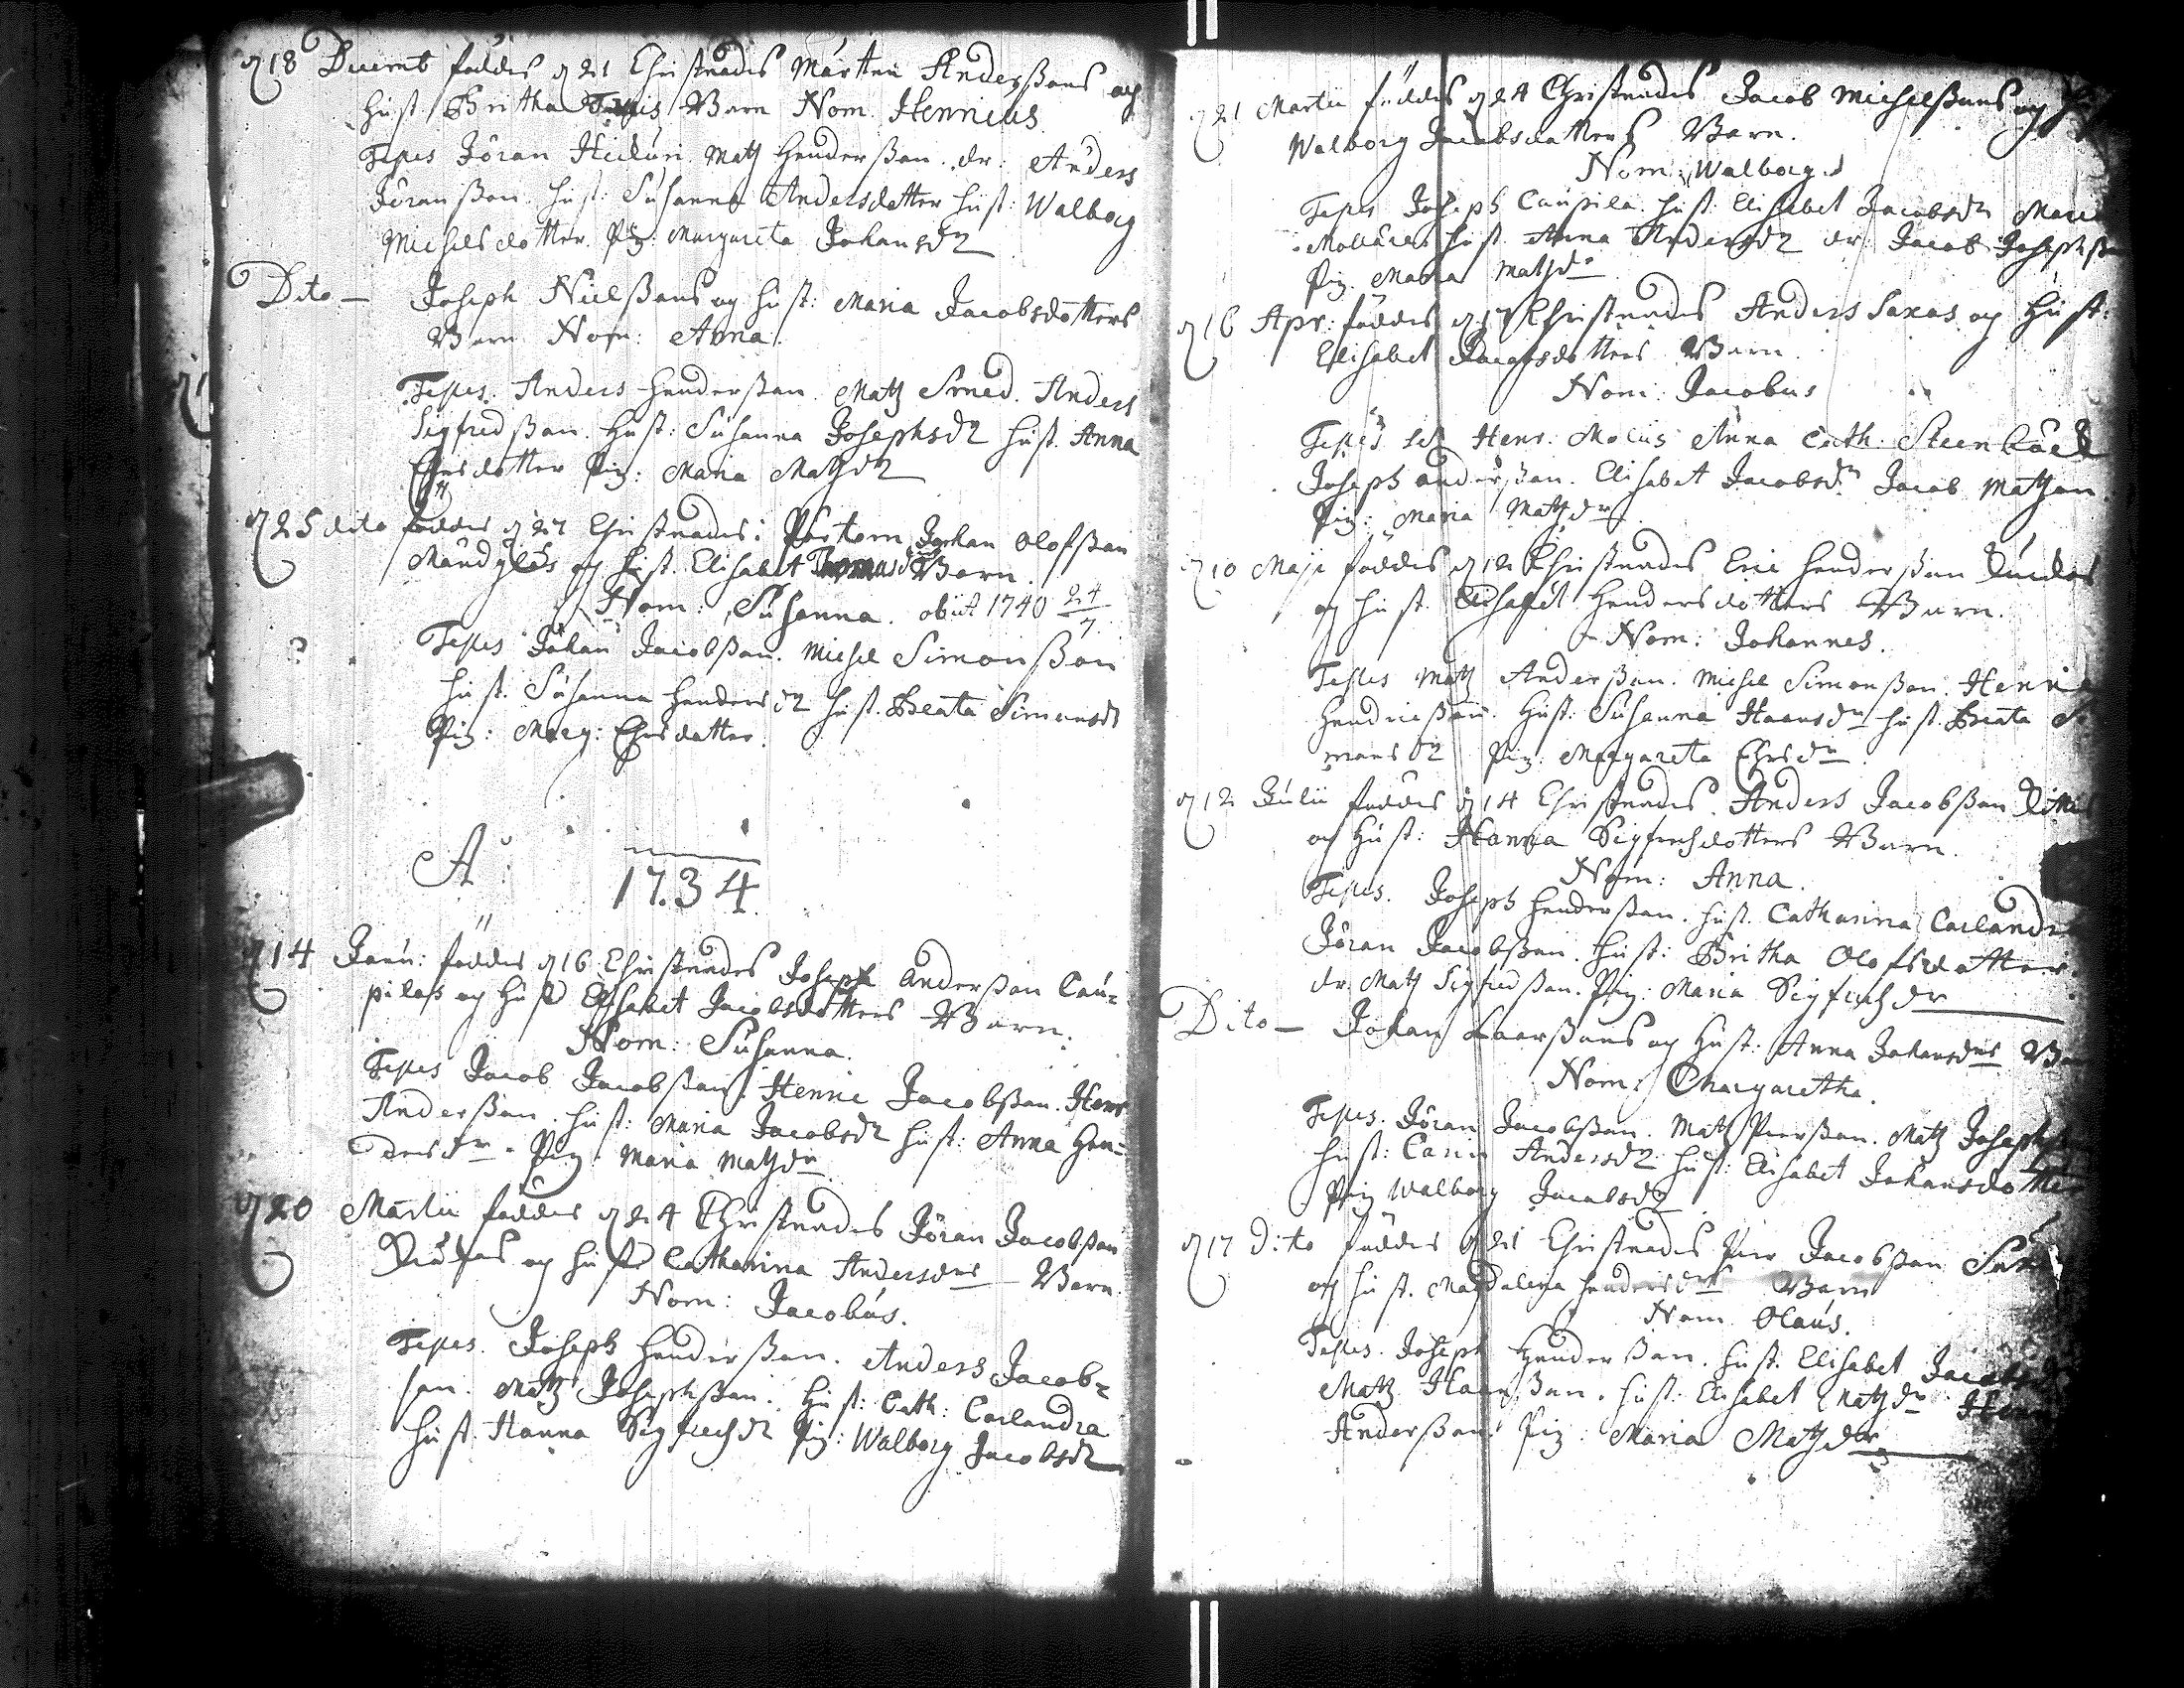 d. 18 Decemb föddes d. 21 Christnades Mårten Anderßons och
hust Britha Barn Nom. Henricus
Testes Jöran Matz Henderßon. dr: Anders
Jöranßon. hust: Susanna Andersdotter hust: Walborg
Michelsdotter. Pig: Margareta Johansdr
Dito — Joseph Nielßons og hust: Maria Jacobsdotters
Barn Nom: Anna.
Testes. Anders Henderßon. Matz Smed. Anders
Sigfredßon. Hust: Susanna Josephsdr hust. Anna
Ersdotter Pig: Maria Matzdr
d. 25 dito föddes d. 27 Christnades: Johan Olofßon
og hust. Elisabet Thomasdr Barn.
Nom: Susanna. obiit 1740 24/7.
Testes Johan Jacobßon. Michel Simonßon
hust. Susanna Hendersdr hust. Beata Simonsdr
Pig: Marg: Ersdotter.
A: 1734
d. 14 Janu: föddes d. 16 Christnades Joseph Anderßon Cau=
pilas og Hust Elisabet Jacobsdotters Barn.
Nom: Susanna.
Testes Jacob Jacobßon. Henric Jacobßon. Henr
Anderßon. hust: Maria Jacobsdr hust: Anna Hen=
dersdr. Pig: Maria Matzdr
d. 20 Martii föddes d. 24 Christnades Jöran Jacobßon
og hust Catharina Andersdrs Barn.
Nom: Jacobus.
Testes. Joseph Henderßon. Anders Jacob=
son. Matz Josephßon. Hust: Cath: Carlandra
hust. Hanna Sigfredsdr Pig: Walborg Jacobsdr
d. 21 Martii föddes d. 24 Christnades Jacob Michelßons og
Walborg Jacobsdotters Barn.
Nom: Walborg
Testes Joseph Caupila. hust: Elisabet Jacobsdr
hust. Anna Andersdr dr: Jacob Josephß
Pig. Maria Matzdr
d. 16 Apr: föddes d. 17 Christnades Anders Saxas og Hust:
Elisabet Jacobsdotters Barn.
Nom: Jacobus
Testes Henr. Anna Cath. Steenbäck
Joseph Anderßon. Elisabet Jacobsdr Jacob Matzon.
Pig: Maria Matzdr
d. 10 Maji föddes d. 12 Christnades Eric Henderßon
og hust. Elisabet Hendersdotters Barn.
Nom: Johannes.
Testes Matz Anderßon. Michel Simonßon. Henri
Hendricßon. Hust: Susanna Haansdr hust. Beata Si
monsdr Pig: Margareta Ersdr
d. 12 Julii föddes d. 14 Christnades. Anders Jacobßon
og Hust: Hanna Sigfredsdotters Barn.
Nom: Anna.
Testes. Joseph Henderßon. hust. Catharina Carlandra
Jöran Jacobßon. Hust: Britha Olofsdotter.
dr. Matz Sigfredßon. Pig: Maria Sigfredsdr
Dito — Johan Laarßons og Hust: Anna Johansdrs
Nom: Margaretha.
Testes. Jöran Jacobßon. Matz Pierßon. Matz Joseph
hust: Carin Andersdr hust: Elisabet Johansdotter
Pig Walborg Jacobsdr
d. 17 Dito föddes d. 21 Christnades Pier Jacobßon
og hust. Magdalena Hendersdrs Barn
Nom Olaus.
Testes. Joseph Henderßon. hust. Elisabet
Matz Haanßon. hust: Elisabet Matzdr
Anderßon. Pig: Maria Matzdr